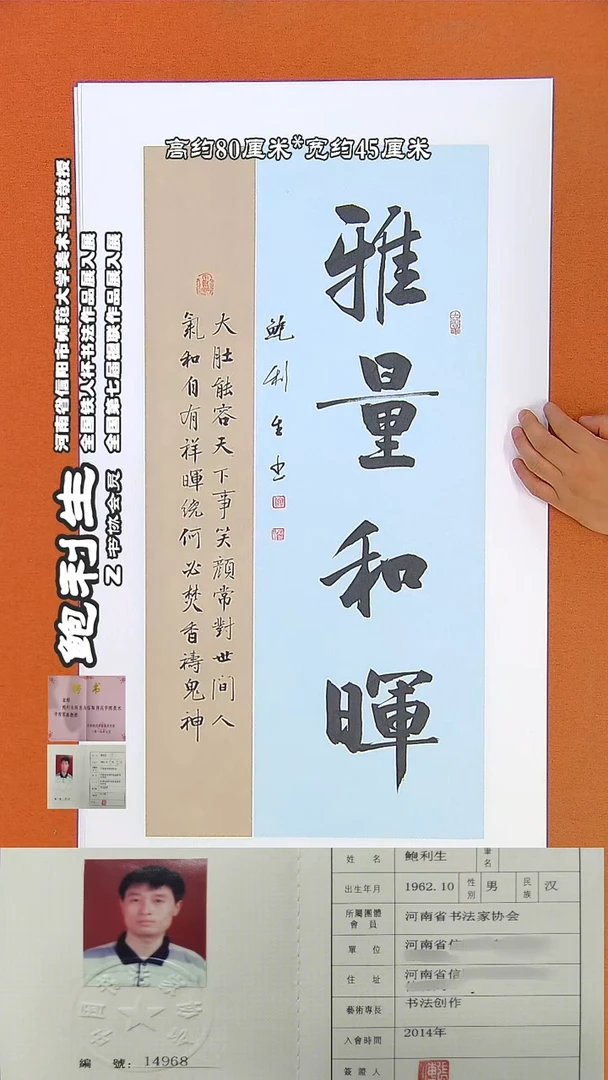 高约80厘米*宽约45厘米
雅量和暉
鲍利生书
大肚能容天下事笑颜常對世间人
氣和自有祥暉绕何必焚香禱鬼神
河南省信阳市师范大学美术学院教授
鲍利生
Z书协会员
聘书
姓名 鲍利生 筆名
出生年月 1962.10 性別 男 民族 汉
所屬團體會員 河南省书法家协会
單位 河南省信
住址 河南省信
藝術專長 书法创作
入會時間 2014年
簽證人
編號：14968